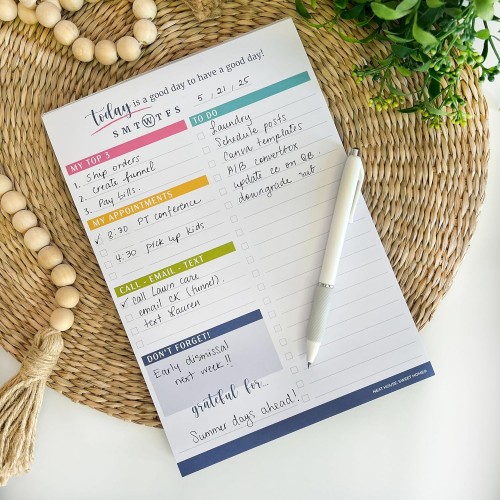 Today is a good day to have a good day!
S M T W T F S
5 / 21 / 25
MY TOP 3
1. Ship orders
2. create funnel
3. Pay bills.
MY APPOINTMENTS
✓ 8:30 PT conference
4:30 pick up kids
CALL - EMAIL - TEXT
✓ call Lawn care
email CK (funnel).
text Lauren
DON'T FORGET!
Early dismissal
next week!!
grateful for...
Summer days ahead!
TO DO
Laundry
Schedule posts
Canva templates
A/B convertbox
update cc on QB.
downgrade sub
NEAT HOUSE. SWEET HOME®